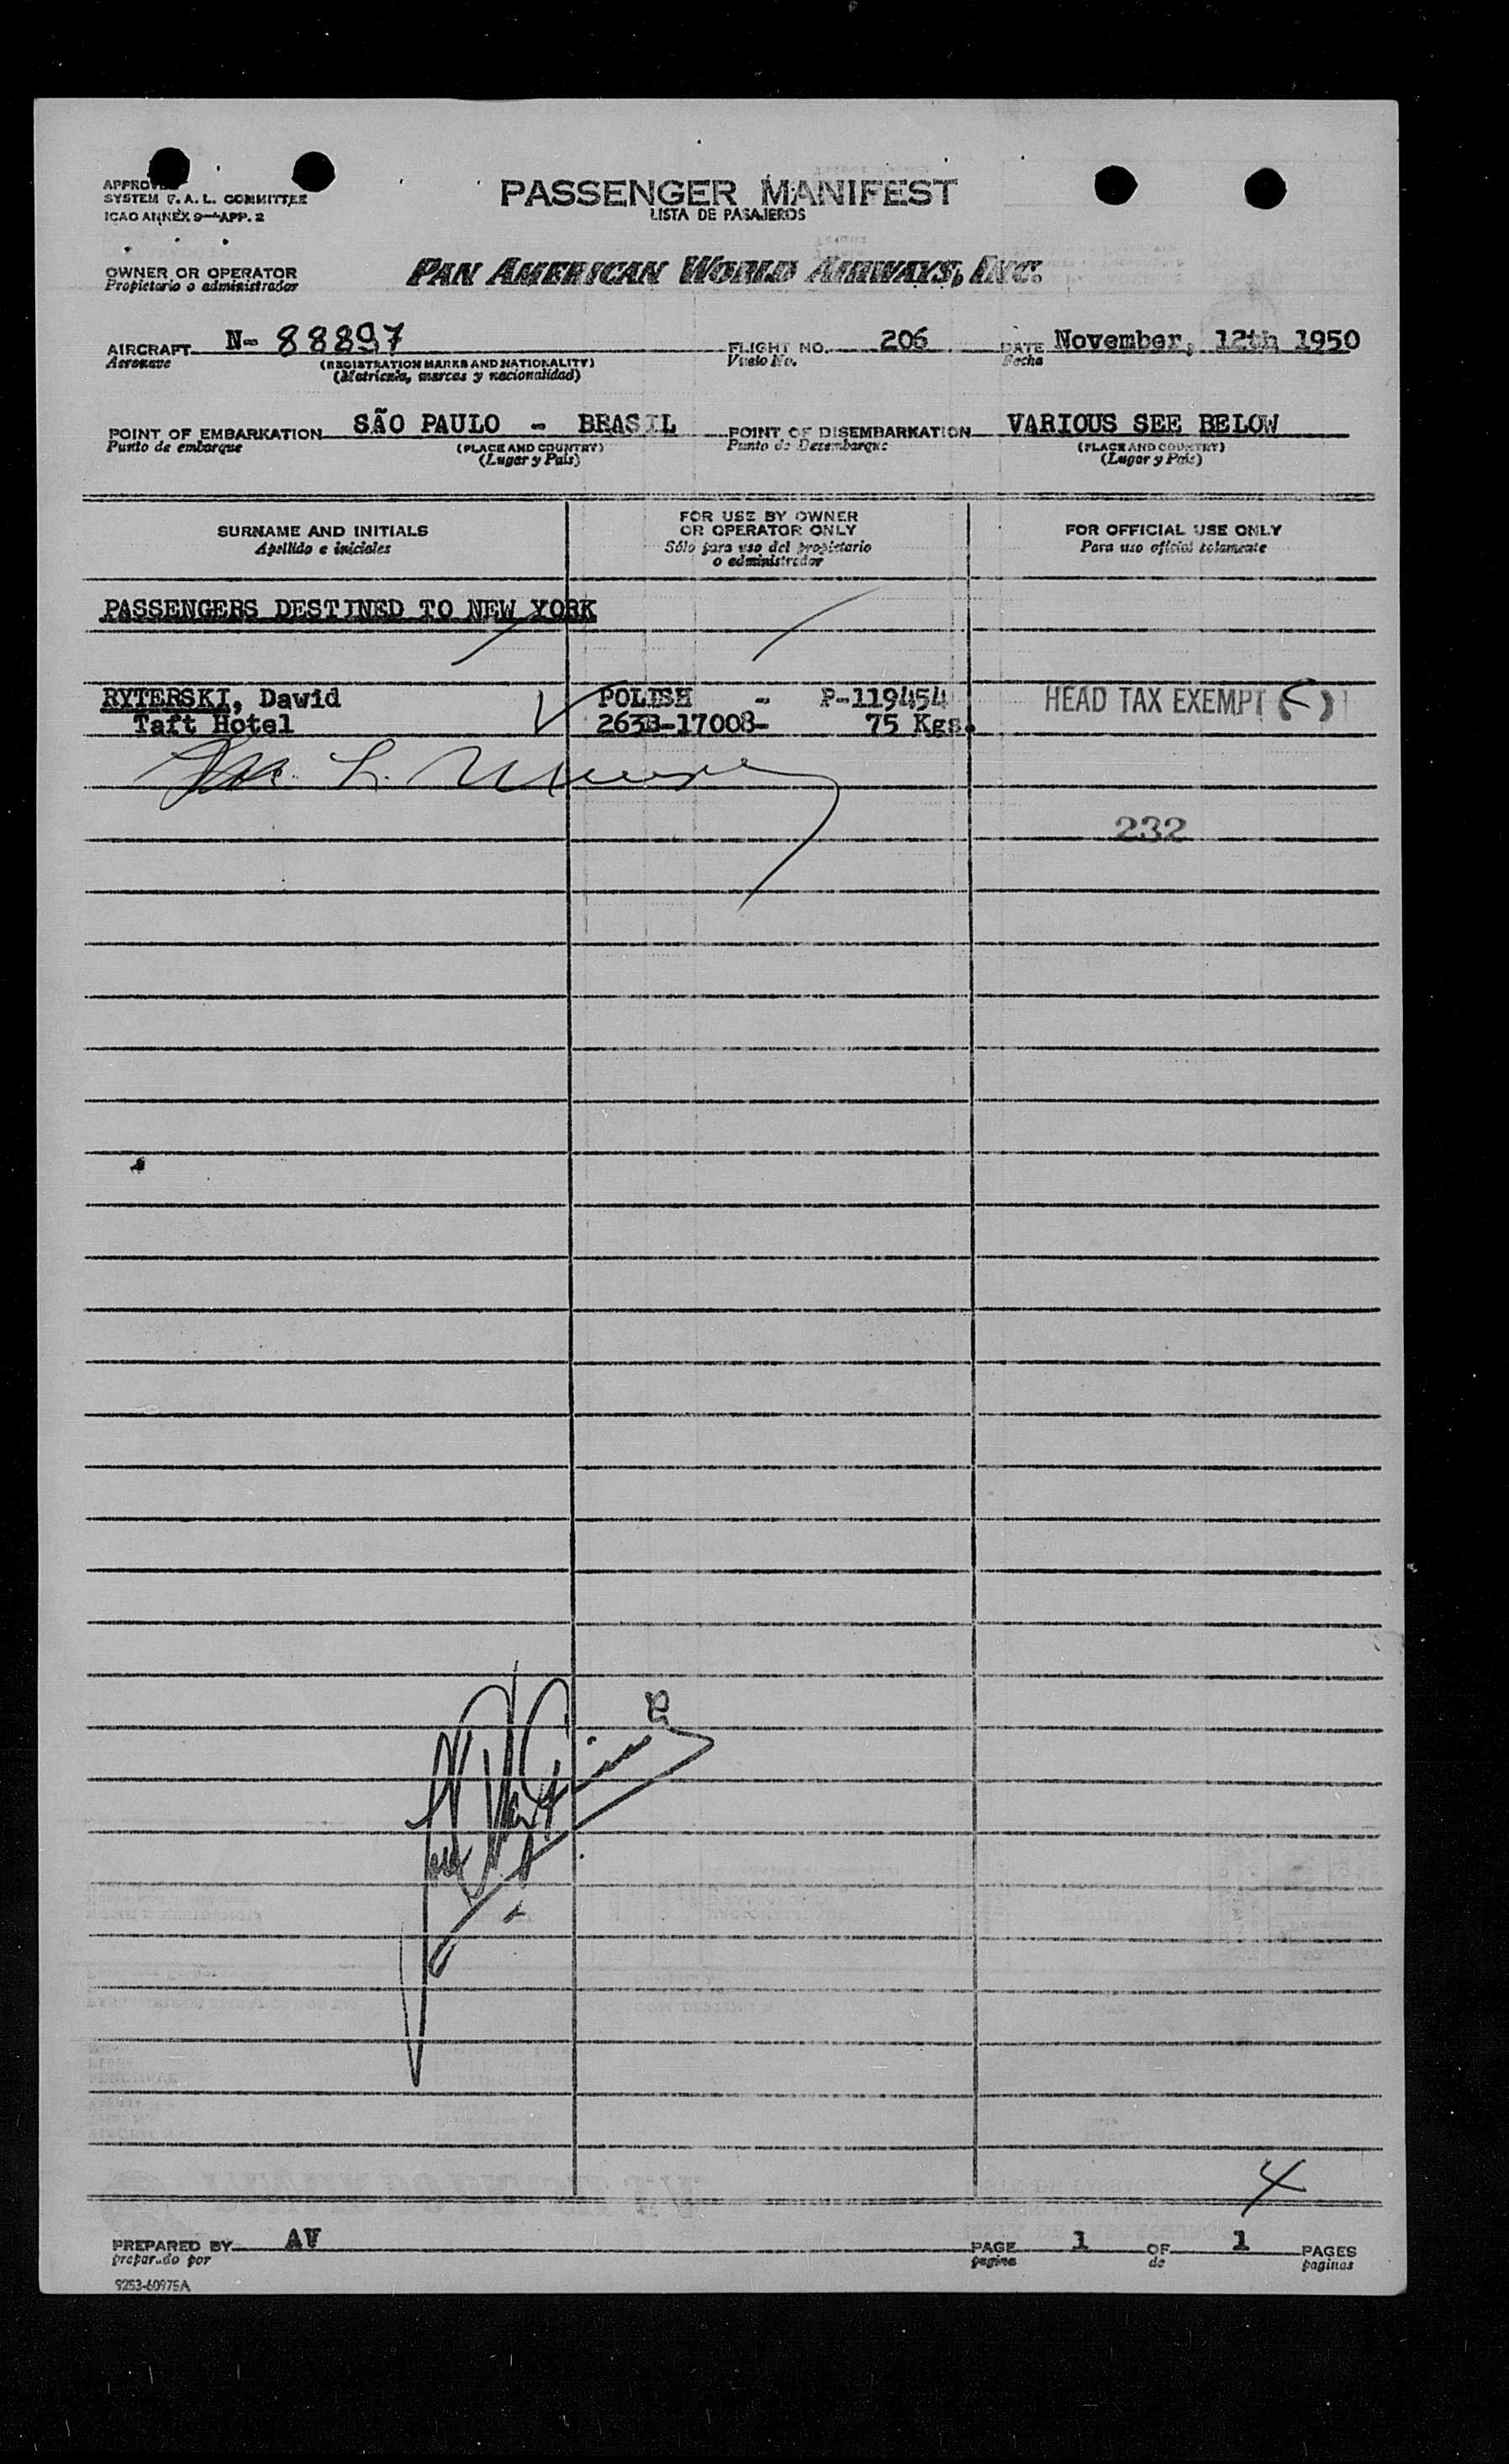 APPROVED
SYSTEM F. A. L. COMMITTEE
ICAO ANNEX 9—APP. 2
PASSENGER MANIFEST
LISTA DE PASAJEROS
OWNER OR OPERATOR
Propietario o administrador
PAN AMERICAN WORLD AIRWAYS, INC.
AIRCRAFT N- 88897 FLIGHT NO. 206 DATE November, 12th 1950
Aeronave (REGISTRATION MARKS AND NATIONALITY) Vuelo No. Fecha
(Matricula, marcas y nacionalidad)
POINT OF EMBARKATION SÃO PAULO - BRASIL POINT OF DISEMBARKATION VARIOUS SEE BELOW
Punto de embarque (PLACE AND COUNTRY) Punto de Desembarque (PLACE AND COUNTRY)
(Lugar y Pais) (Lugar y Pais)
SURNAME AND INITIALS
Apellido e iniciales
FOR USE BY OWNER
OR OPERATOR ONLY
Sólo para uso del propietario
o administrador
FOR OFFICIAL USE ONLY
Para uso oficial solamente
PASSENGERS DESTINED TO NEW YORK
RYTERSKI, Dawid POLISH - P-119454 HEAD TAX EXEMPT ( )
Taft Hotel 263B-17008- 75 Kgs.
232
4
PREPARED BY AV PAGE 1 OF 1 PAGES
preparado por pagina de paginas
9253-60975A